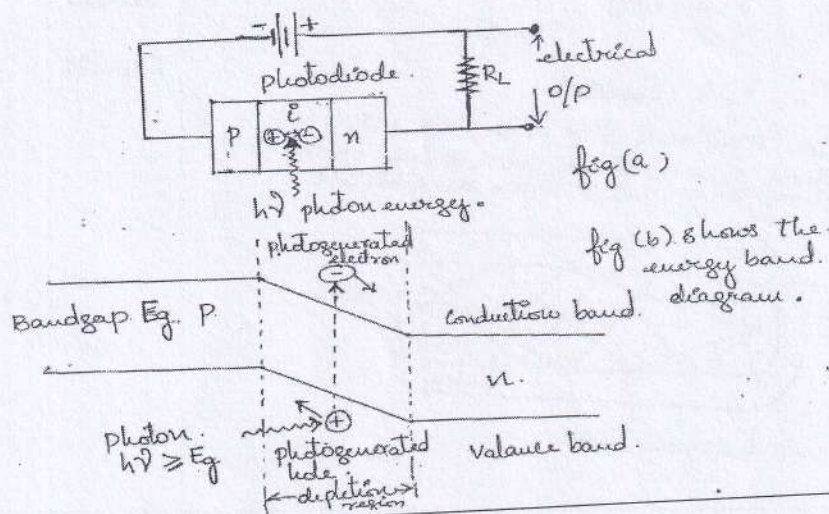 - +
photodiode.
RL
electrical
o/p
P i n
+ -
hν photon energy.
fig (a)
photogenerated
electron
-
fig (b). shows the
energy band.
diagram.
Bandgap Eg. P
Conduction band.
n.
photon.
hν ≥ Eg
+
photogenerated
hole.
Valance band.
depletion
region